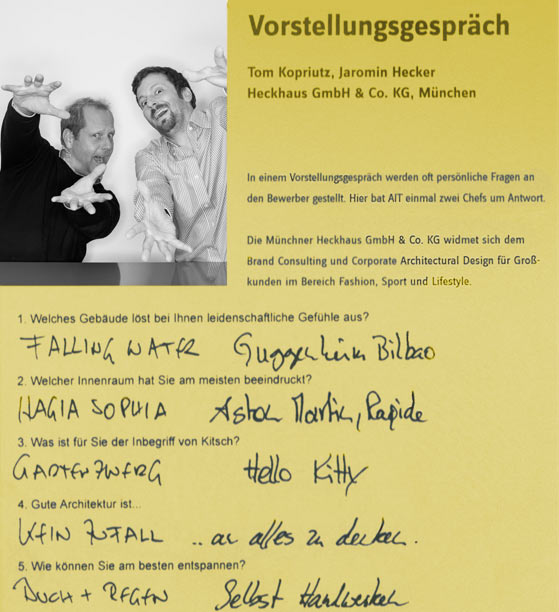 Vorstellungsgespräch
Tom Kopriutz, Jaromin Hecker
Heckhaus GmbH & Co. KG, München
In einem Vorstellungsgespräch werden oft persönliche Fragen an
den Bewerber gestellt. Hier bat AIT einmal zwei Chefs um Antwort.
Die Münchner Heckhaus GmbH & Co. KG widmet sich dem
Brand Consulting und Corporate Architectural Design für Groß-
kunden im Bereich Fashion, Sport und Lifestyle.
1. Welches Gebäude löst bei Ihnen leidenschaftliche Gefühle aus?
FALLING WATER Guggenheim Bilbao
2. Welcher Innenraum hat Sie am meisten beeindruckt?
HAGIA SOPHIA Aston Martin, Rapide
3. Was ist für Sie der Inbegriff von Kitsch?
GARTENZWERG Hello Kitty
4. Gute Architektur ist...
KEIN ZUFALL .. an alles zu denken.
5. Wie können Sie am besten entspannen?
BUCH + REGEN Selbst Handwerken